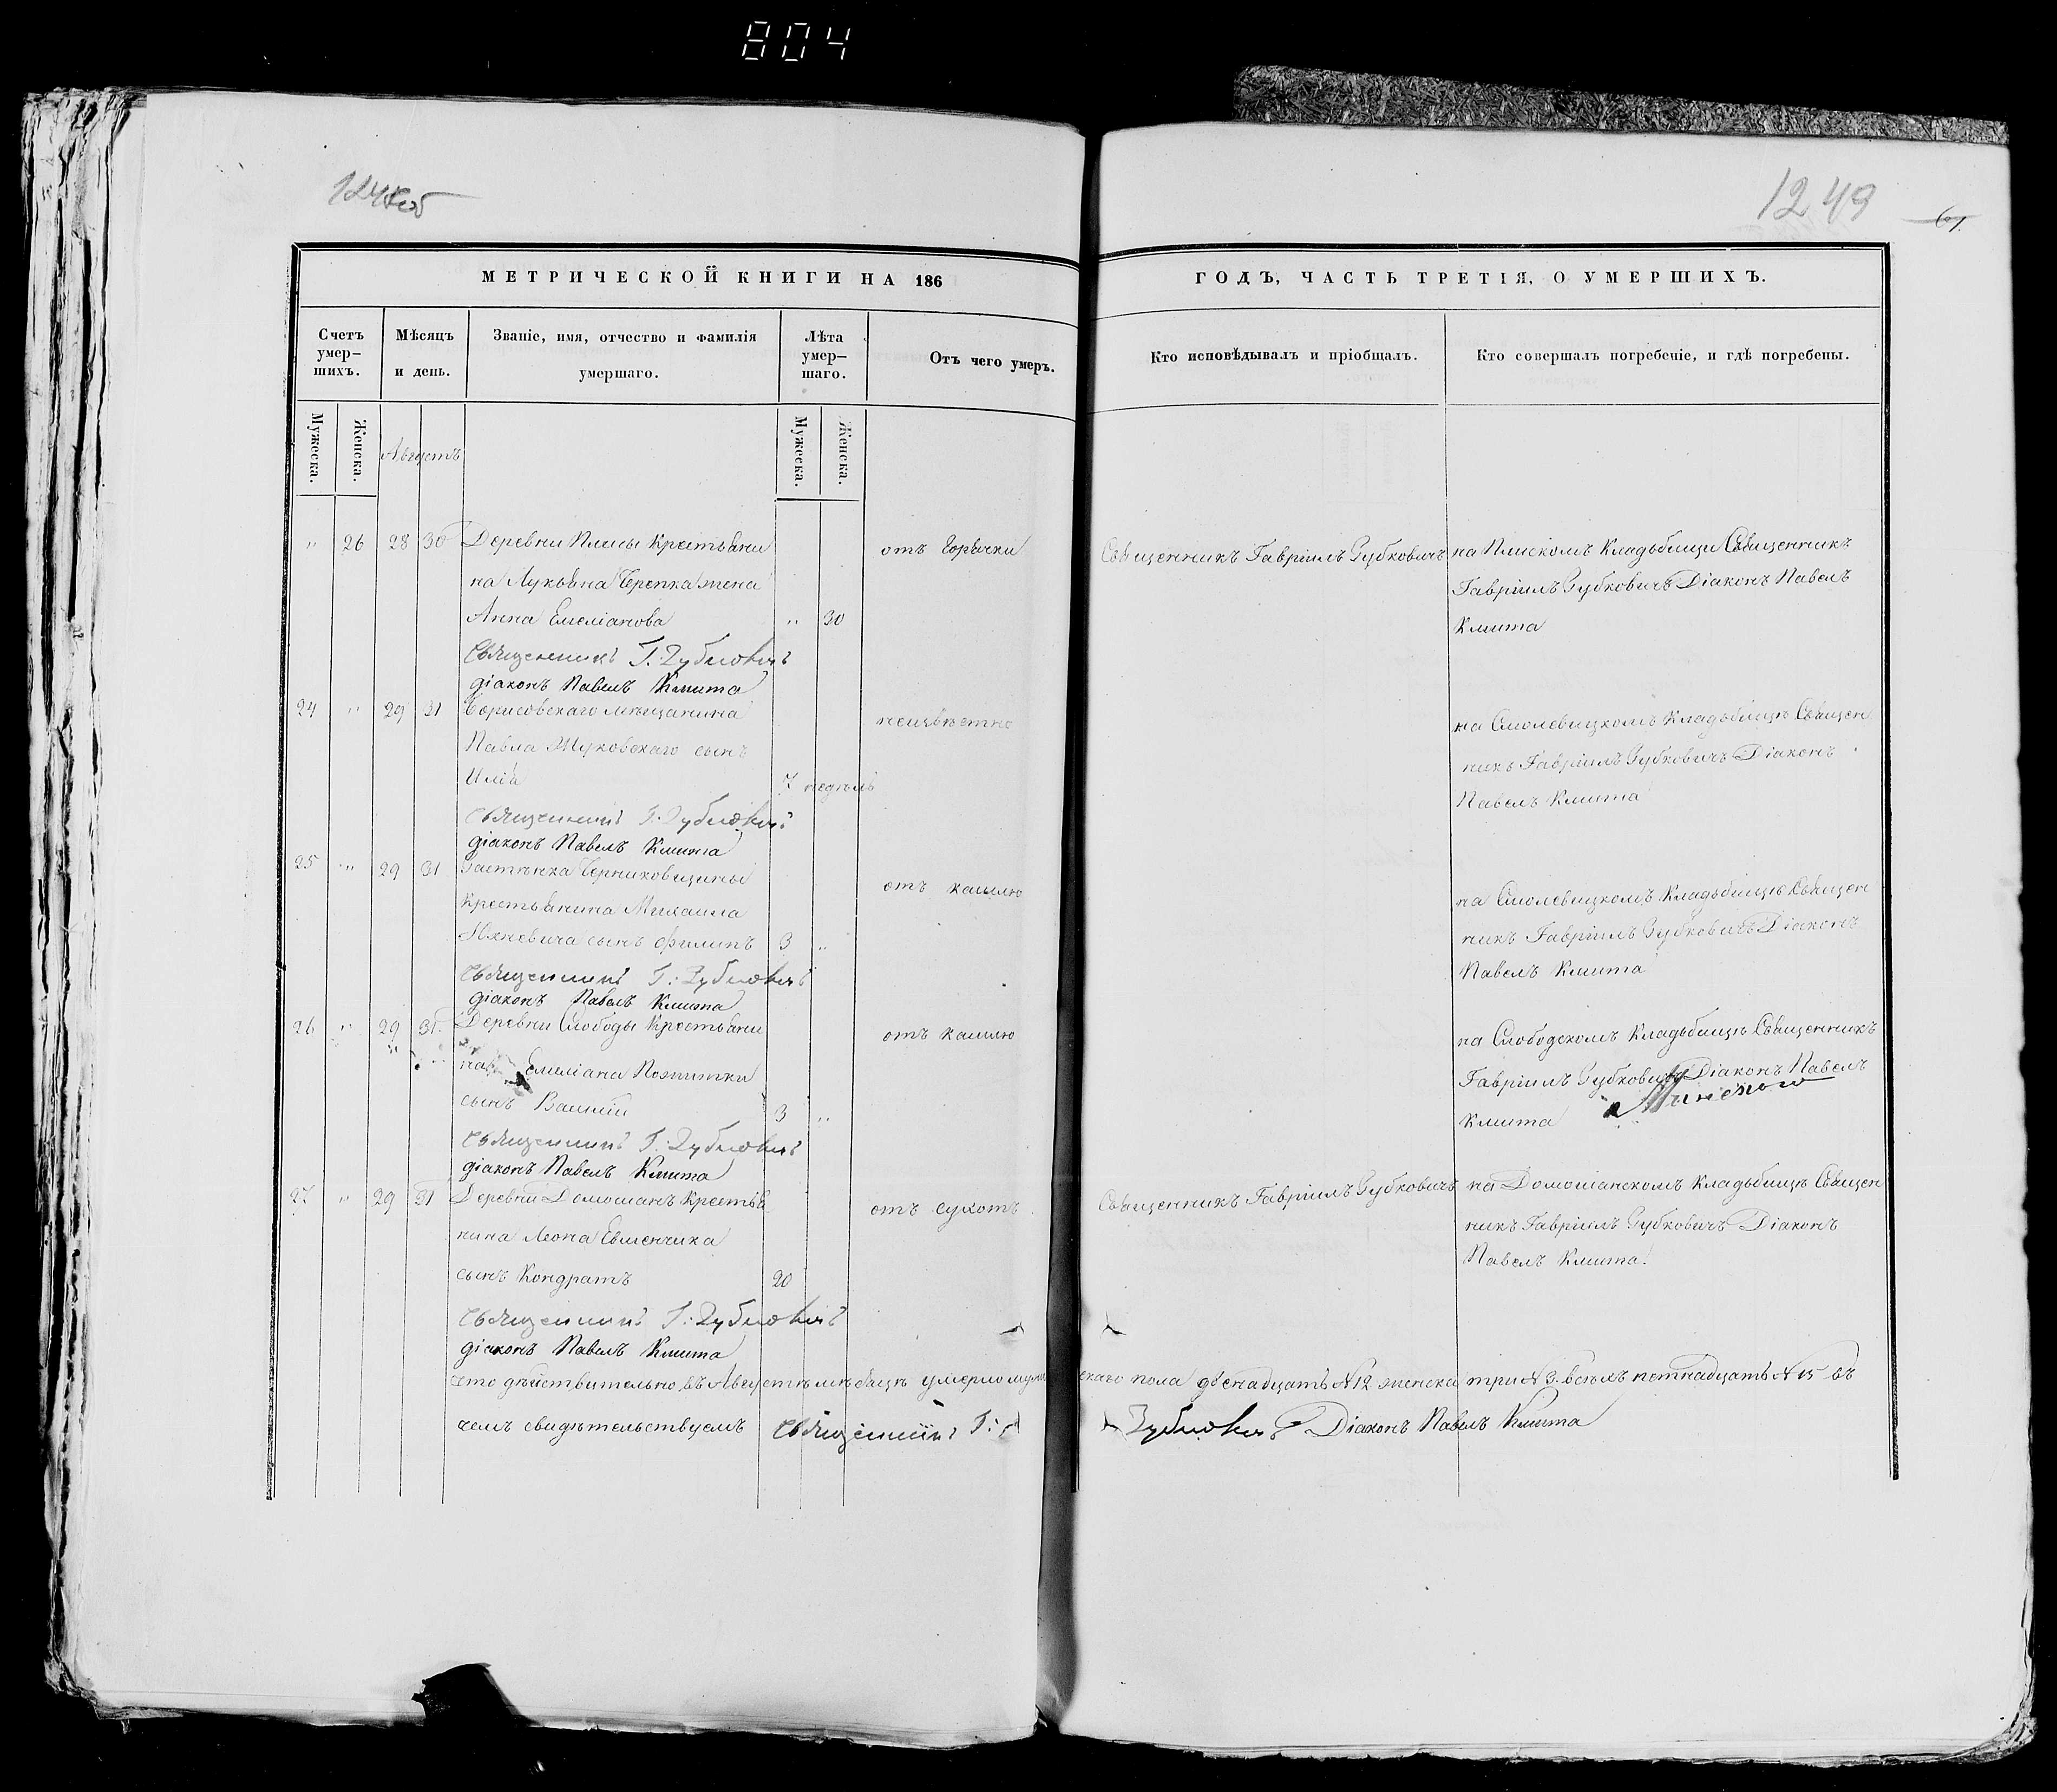 804
1249
61.
МЕТРИЧЕСКОЙ КНИГИ НА 186
ГОДЪ, ЧАСТЬ ТРЕТІЯ, О УМЕРШИХЪ.
Счетъ умер-
шихъ.
Мѣсяцъ
и день.
Званіе, имя, отчество и фамилія
умершаго.
Лѣта
умер-
шаго.
Отъ чего умеръ.
Кто исповѣдывалъ и пріобщалъ.
Кто совершалъ погребеніе, и гдѣ погребены.
Мужеска.
Женска.
Августъ
Мужеска.
Женска.
" 26 28 30 Деревни Плисы Крестьяни
на Лукьяна Черепка жена
Анна Емеліанова " 30
отъ Горячки
Священникъ Гавріилъ Зубковичъ
на Плискомъ Кладбищи Священникъ
Гавріилъ Зубковичъ Діаконъ Павелъ
Кмита
Священникъ Г. Зубковичъ
діаконъ Павелъ Кмита
24 " 29 31 Борисовскаго мѣщанина
Павла Жуковскаго сынъ
Илія 7 недѣль
неизвѣстно
на Смолевицкомъ Кладбищѣ Священ
никъ Гавріилъ Зубковичъ Діаконъ
Павелъ Кмита
Священникъ Г. Зубковичъ
діаконъ Павелъ Кмита
25 " 29 31 Застѣнка Черниковщины
Крестьянина Михаила
сынъ Филипъ 3 "
отъ кашлю
на Смолевицкомъ Кладбищѣ Священ
никъ Гавріилъ Зубковичъ Діаконъ
Павелъ Кмита
Священникъ Г: Зубковичъ
діаконъ Павелъ Кмита
26 " 29 31. Деревни Слободы Крестьяни
на Емиліана
сынъ Василій 3 "
отъ кашлю
на Слободскомъ Кладбищѣ Священникъ
Гавріилъ Зубковичъ Діаконъ Павелъ
Кмита
Священникъ Г: Зубковичъ
діаконъ Павелъ Кмита
27 " 29 31 Деревни Домошанъ Крестья
нина Леона Евменчика
сынъ Кондратъ 20
отъ сухотъ
Священникъ Гавріилъ Зубковичъ
на Домошанскомъ Кладбищѣ Священ
никъ Гавріилъ Зубковичъ Діаконъ
Павелъ Кмита.
Священникъ Г: Зубковичъ
діаконъ Павелъ Кмита
Что дѣйствительно въ Августѣ мѣсяцѣ умерло мужескаго пола двенадцать №12 женска три №3. всѣмъ петнадцать №15 въ
чемъ свидѣтельствуемъ Священникъ Г: Зубковичъ Діаконъ Павелъ Кмита